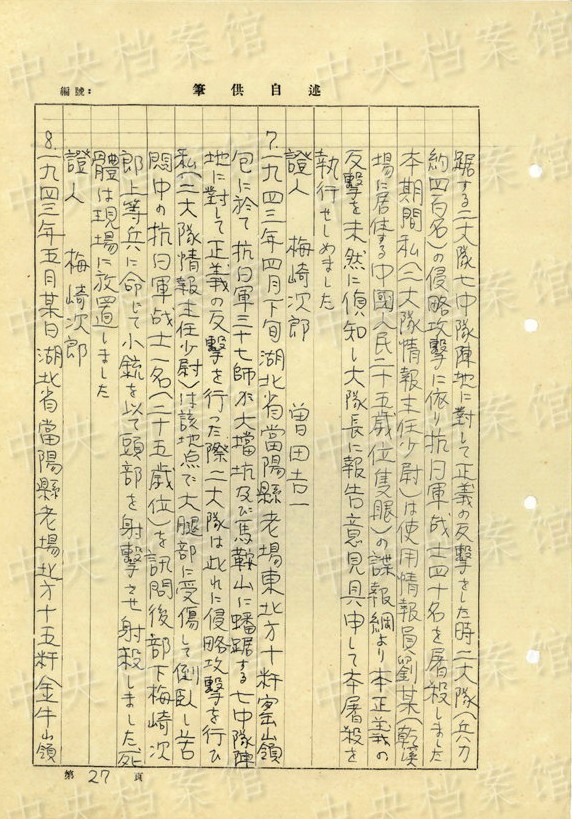 述自供筆
編號：
踞する二大隊七中隊陣地に対して正義の反撃をした時二大隊(兵力
約四百名)の侵略攻撃に依り抗日軍战士四十名を屠殺しました
本期間私(二大隊情報主任少尉)は使用情報員劉某(乾溪
場に居住する中國人民二十五歳位隻眼)の諜報網より本正義の
反撃を未然に偵知し大隊長に報告意見具申して本屠殺を
執行せしめました
證人 梅崎次郎 曽田吉一
7.一九四三年四月下旬湖北省當陽縣老場東北方十粁窑山嶺
包に於て抗日軍三十七師が大檔坑及び馬鞍山に蟠踞する七中隊陣
地に対して正義の反撃を行った際二大隊は此れに侵略攻撃を行ひ
私(二大隊情報主任少尉)は該地点で大腿部に受傷して倒臥し苦
悶中の抗日軍战士一名(二十五歳位)を訊問後部下梅崎次
郎上等兵に命じて小銃を以て頭部を射撃させ射殺しました(死
體は現場に放置しました
證人 梅崎次郎
8.一九四三年五月某日湖北省當陽縣老場北方十五粁金牛山嶺
第 27 頁
中央档案馆